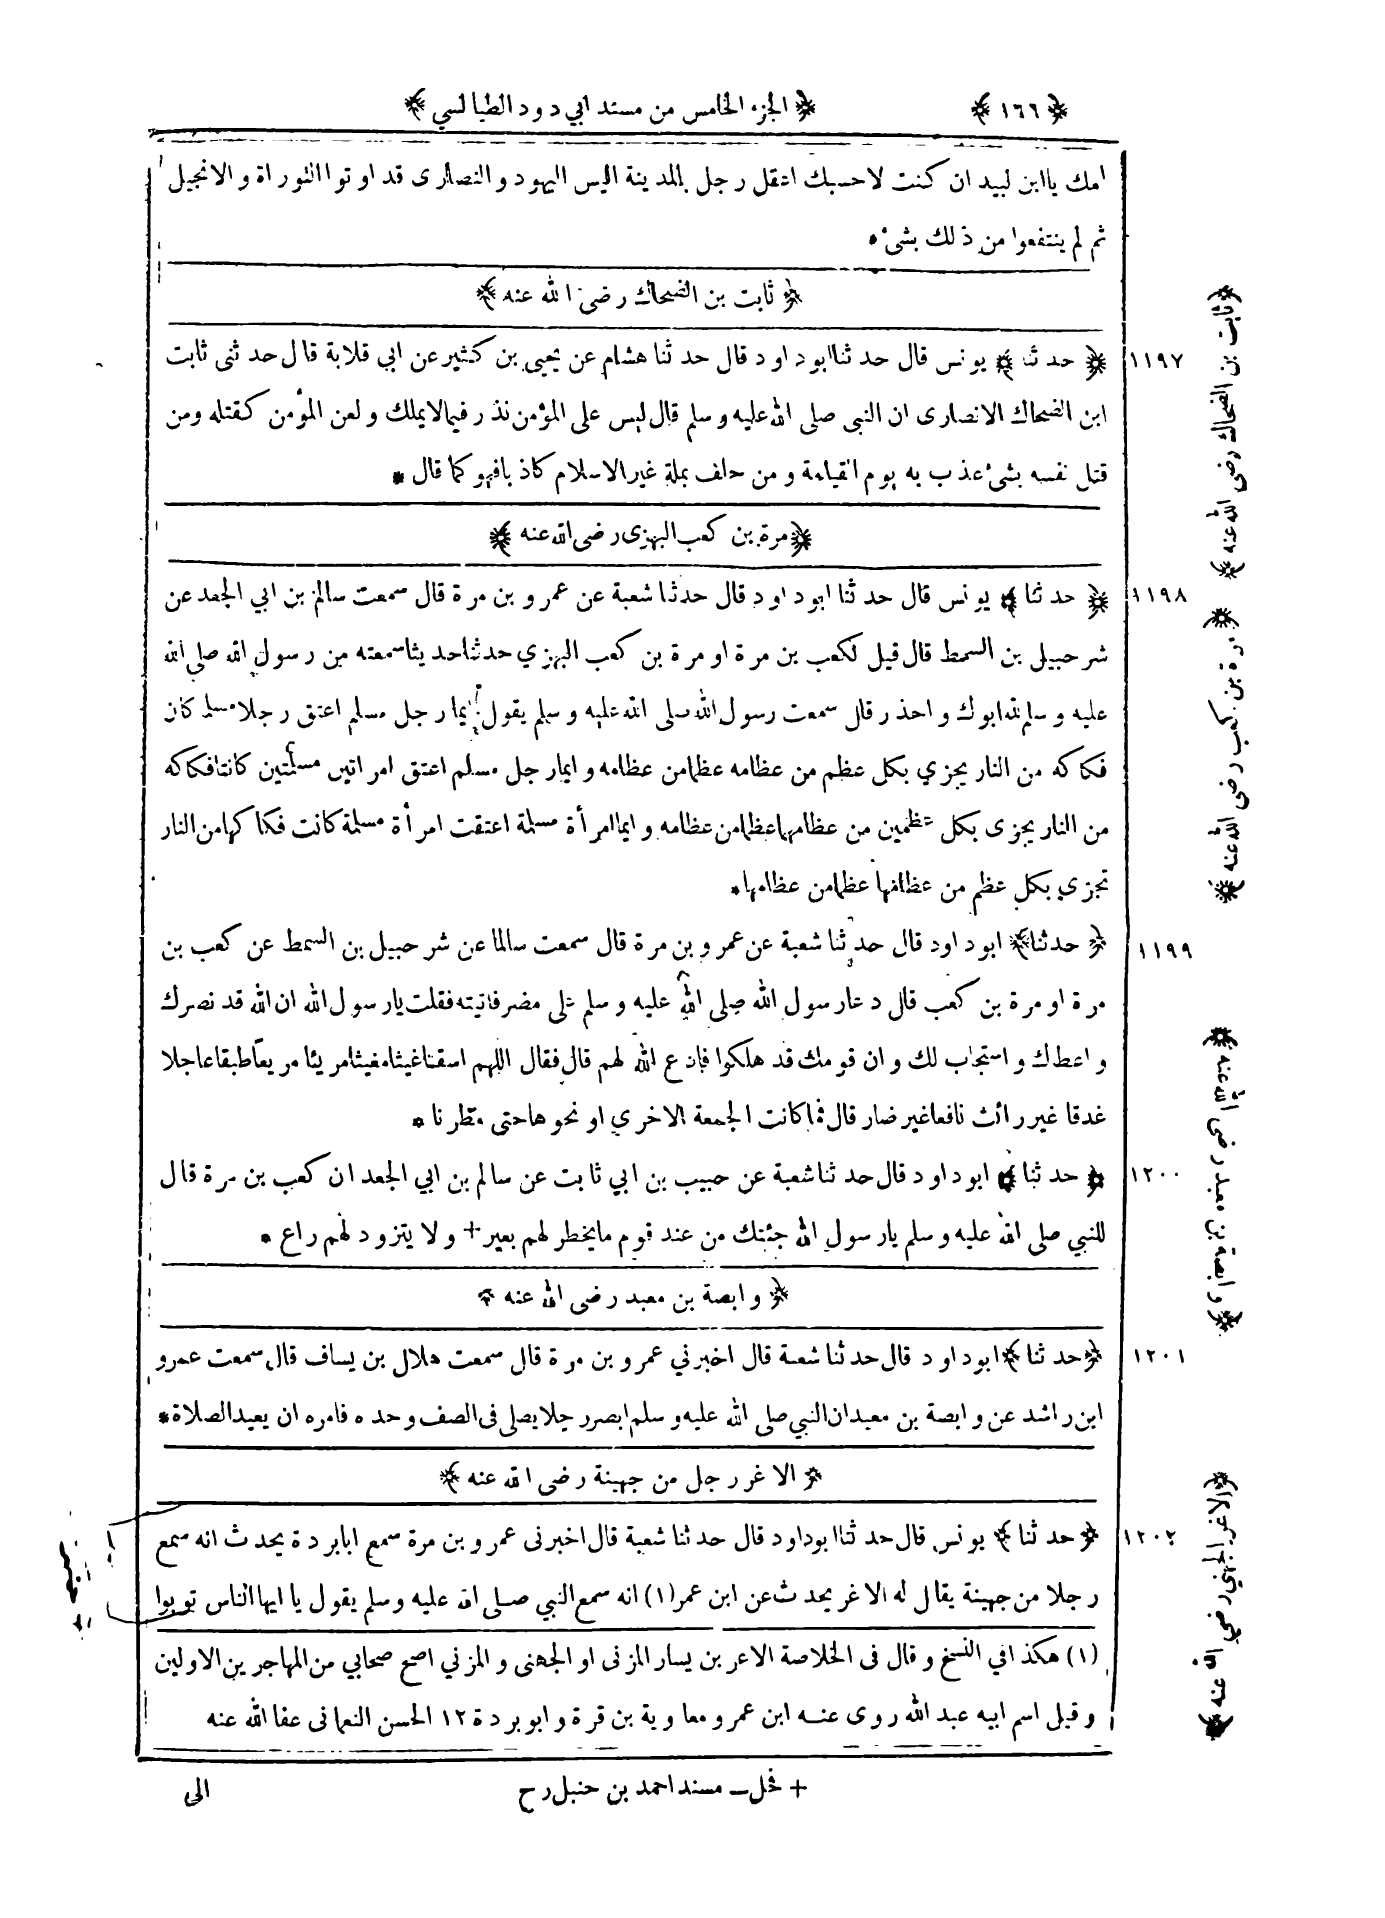 ﴿ ١٦٦ ﴾
﴿ الجزء الخامس من مسند ابي دود الطيالسي ﴾
امك يا ابن لبيد ان كنت لاحسبك اعقل رجل بالمدينة اليس اليهود و النصارى قد اوتوا التوراة و الانجيل
ثم لم ينتفعوا من ذلك بشئ *
﴿ ثابت بن الضحاك رضى الله عنه ﴾
١١٩٧ ﴿ حدثنا ﴾ يونس قال حدثنا ابو داود قال حدثنا هشام عن يحيى بن كثير عن ابي قلابة قال حدثنى ثابت
ابن الضحاك الانصارى ان النبى صلى الله عليه و سلم قال ليس على المؤمن نذر فيما لا يملك و لعن المؤمن كقتله ومن
قتل نفسه بشئ عذب به يوم القيامة و من حلف بملة غير الاسلام كاذبا فهو كما قال *
﴿ مرة بن كعب البهزى رضى الله عنه ﴾
١١٩٨ ﴿ حدثنا ﴾ يونس قال حدثنا ابو داود قال حدثنا شعبة عن عمرو بن مرة قال سمعت سالم بن ابي الجعد عن
شرحبيل بن السمط قال قيل لكعب بن مرة او مرة بن كعب البهزي حدثنا حديثا سمعته من رسول الله صلى الله
عليه و سلم لله ابوك و احذر قال سمعت رسول الله صلى الله عليه و سلم يقول ايما رجل مسلم اعتق رجلا مسلما كان
فكاكه من النار يجزي بكل عظم من عظامه عظما من عظامه و ايما رجل مسلم اعتق امراتين مسلمتين كانتا فكاكه
من النار يجزى بكل عظمين من عظامهما عظما من عظامه و ايما امرأة مسلمة اعتقت امرأة مسلمة كانت فكاكها من النار
تجزي بكل عظم من عظامها عظما من عظامها *
١١٩٩ ﴿ حدثنا ﴾ ابو داود قال حدثنا شعبة عن عمرو بن مرة قال سمعت سالما عن شرحبيل بن السمط عن كعب بن
مرة او مرة بن كعب قال دعا رسول الله صلى الله عليه و سلم على مضر فاتيته فقلت يا رسول الله ان الله قد نصرك
و اعطاك و استجاب لك و ان قومك قد هلكوا فادع الله لهم قال فقال اللهم اسقنا غيثا مغيثا مريئا مريعا طبقا عاجلا
غدقا غير رائث نافعا غير ضار قال فما كانت الجمعة الاخرى او نحوها حتى مطرنا *
١٢٠٠ ﴿ حدثنا ﴾ ابو داود قال حدثنا شعبة عن حبيب بن ابي ثابت عن سالم بن ابي الجعد ان كعب بن مرة قال
للنبي صلى الله عليه و سلم يا رسول الله جئتك من عند قوم ما يخطر لهم بعير + و لا يتزود لهم راع *
﴿ وابصة بن معبد رضى الله عنه ﴾
١٢٠١ ﴿ حدثنا ﴾ ابو داود قال حدثنا شعبة قال اخبرني عمرو بن مرة قال سمعت هلال بن يساف قال سمعت عمرو
ابن راشد عن وابصة بن معبد ان النبي صلى الله عليه و سلم ابصر رجلا يصلى فى الصف وحده فامره ان يعيد الصلاة *
﴿ الاغر رجل من جهينة رضى الله عنه ﴾
١٢٠٢ ﴿ حدثنا ﴾ يونس قال حدثنا ابو داود قال حدثنا شعبة قال اخبرنى عمرو بن مرة سمع ابا بردة يحدث انه سمع
رجلا من جهينة يقال له الاغر يحدث عن ابن عمر (١) انه سمع النبي صلى الله عليه وسلم يقول يا ايها الناس توبوا
(١) هكذا في النسخ و قال فى الخلاصة الاغر بن يسار المزنى او الجهنى و المزني اصح صحابي من المهاجرين الاولين
و قيل اسم ابيه عبد الله روى عنه ابن عمر و معاوية بن قرة و ابو بردة ١٢ الحسن النعمانى عفا الله عنه
+ فحل ــ مسند احمد بن حنبل رح
الى
﴿ ثابت بن الضحاك رضى الله عنه ﴾
﴿ مرة بن كعب رضى الله عنه ﴾
﴿ وابصة بن معبد رضى الله عنه ﴾
﴿ الاغر الجهني رضي الله عنه ﴾